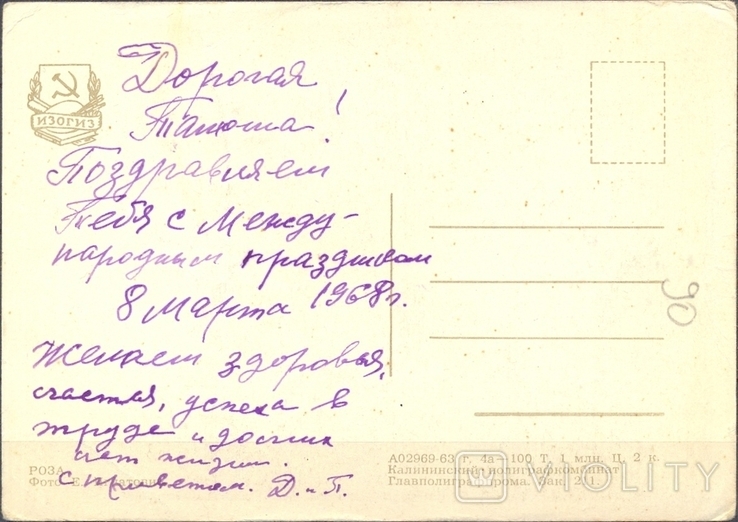 Дорогая
Танюша!
Поздравляем
Тебя с Между-
народным праздником
8 Марта 1968 г.
Желаем здоровья,
счастья, успеха в
труде и долгих
лет жизни.
с приветом. Д. и П.
ИЗОГИЗ
90
РОЗА
Фото Е.
А02969-63 г. 4а—100 Т. 1 млн. Ц. 2 к.
Калининский полиграфкомбинат
Главполиграфпрома. Зак.
VIOLITY